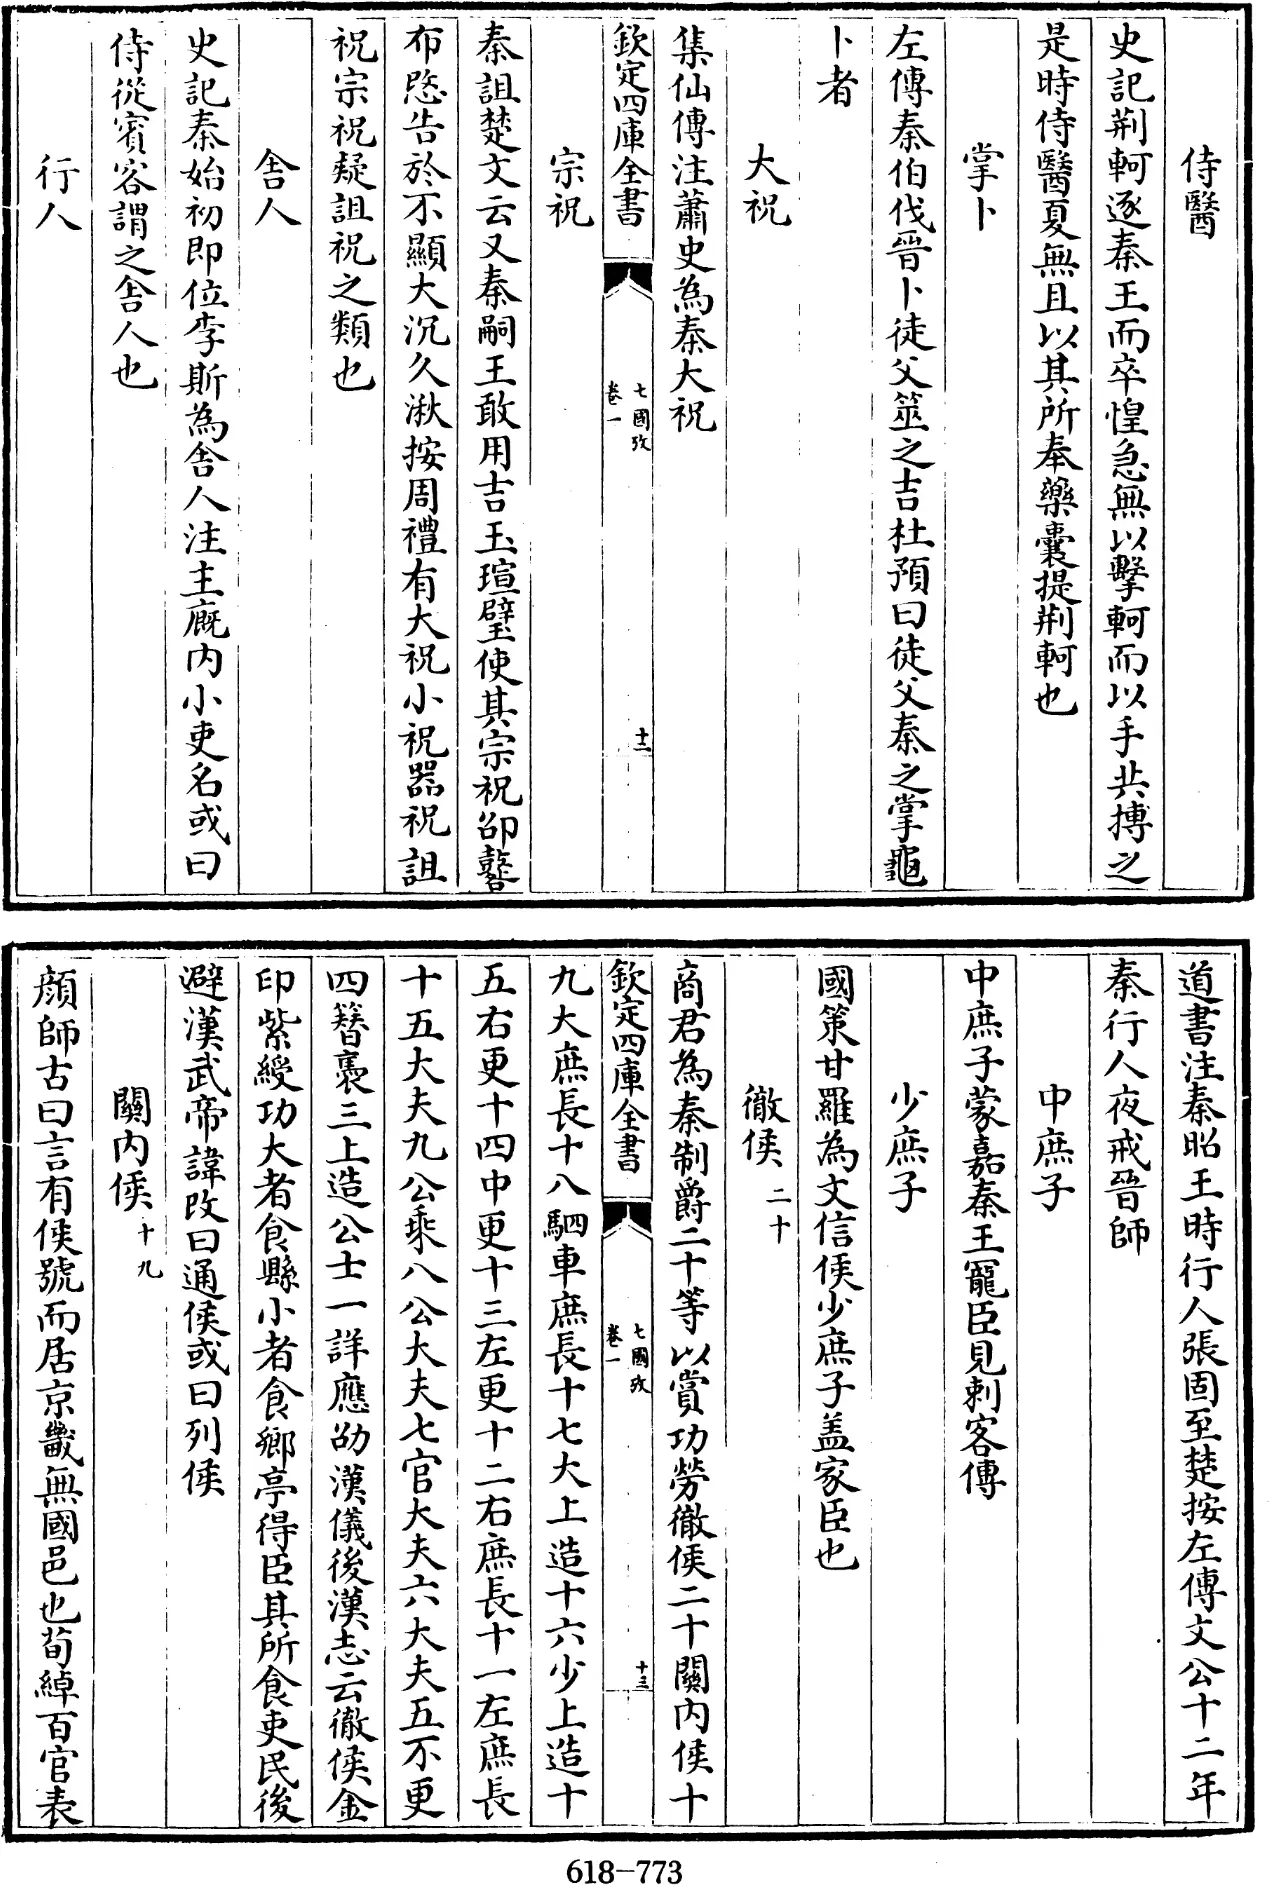 侍醫
史記荆軻逐秦王而卒惶急無以擊軻而以手共搏之
是時侍醫夏無且以其所奉藥囊提荆軻也
掌卜
左傳秦伯伐晉卜徒父筮之吉杜預曰徒父秦之掌龜
卜者
大祝
集仙傳注蕭史為秦大祝
欽定四庫全書
七國攷
卷一
十二
宗祝
秦詛楚文云又秦嗣王敢用吉玉瑄璧使其宗祝卲鼛
布愍告於不顯大沉久湫按周禮有大祝小祝器祝詛
祝宗祝疑詛祝之類也
舍人
史記秦始初即位李斯為舍人注主廐内小吏名或曰
侍從賓客謂之舍人也
行人
道書注秦昭王時行人張固至楚按左傳文公十二年
秦行人夜戒晉師
中庶子
中庶子蒙嘉秦王寵臣見刺客傳
少庶子
國策甘羅為文信侯少庶子蓋家臣也
徹侯 二十
商君為秦制爵二十等以賞功勞徹侯二十關内侯十
欽定四庫全書
七國攷
卷一
十三
九大庶長十八駟車庶長十七大上造十六少上造十
五右更十四中更十三左更十二右庶長十一左庶長
十五大夫九公乘八公大夫七官大夫六大夫五不更
四簪裹三上造公士一詳應劭漢儀後漢志云徹侯金
印紫綬功大者食縣小者食鄉亭得臣其所食吏民後
避漢武帝諱改曰通侯或曰列侯
關内侯 十九
顔師古曰言有侯號而居京畿無國邑也荀綽百官表
618-773